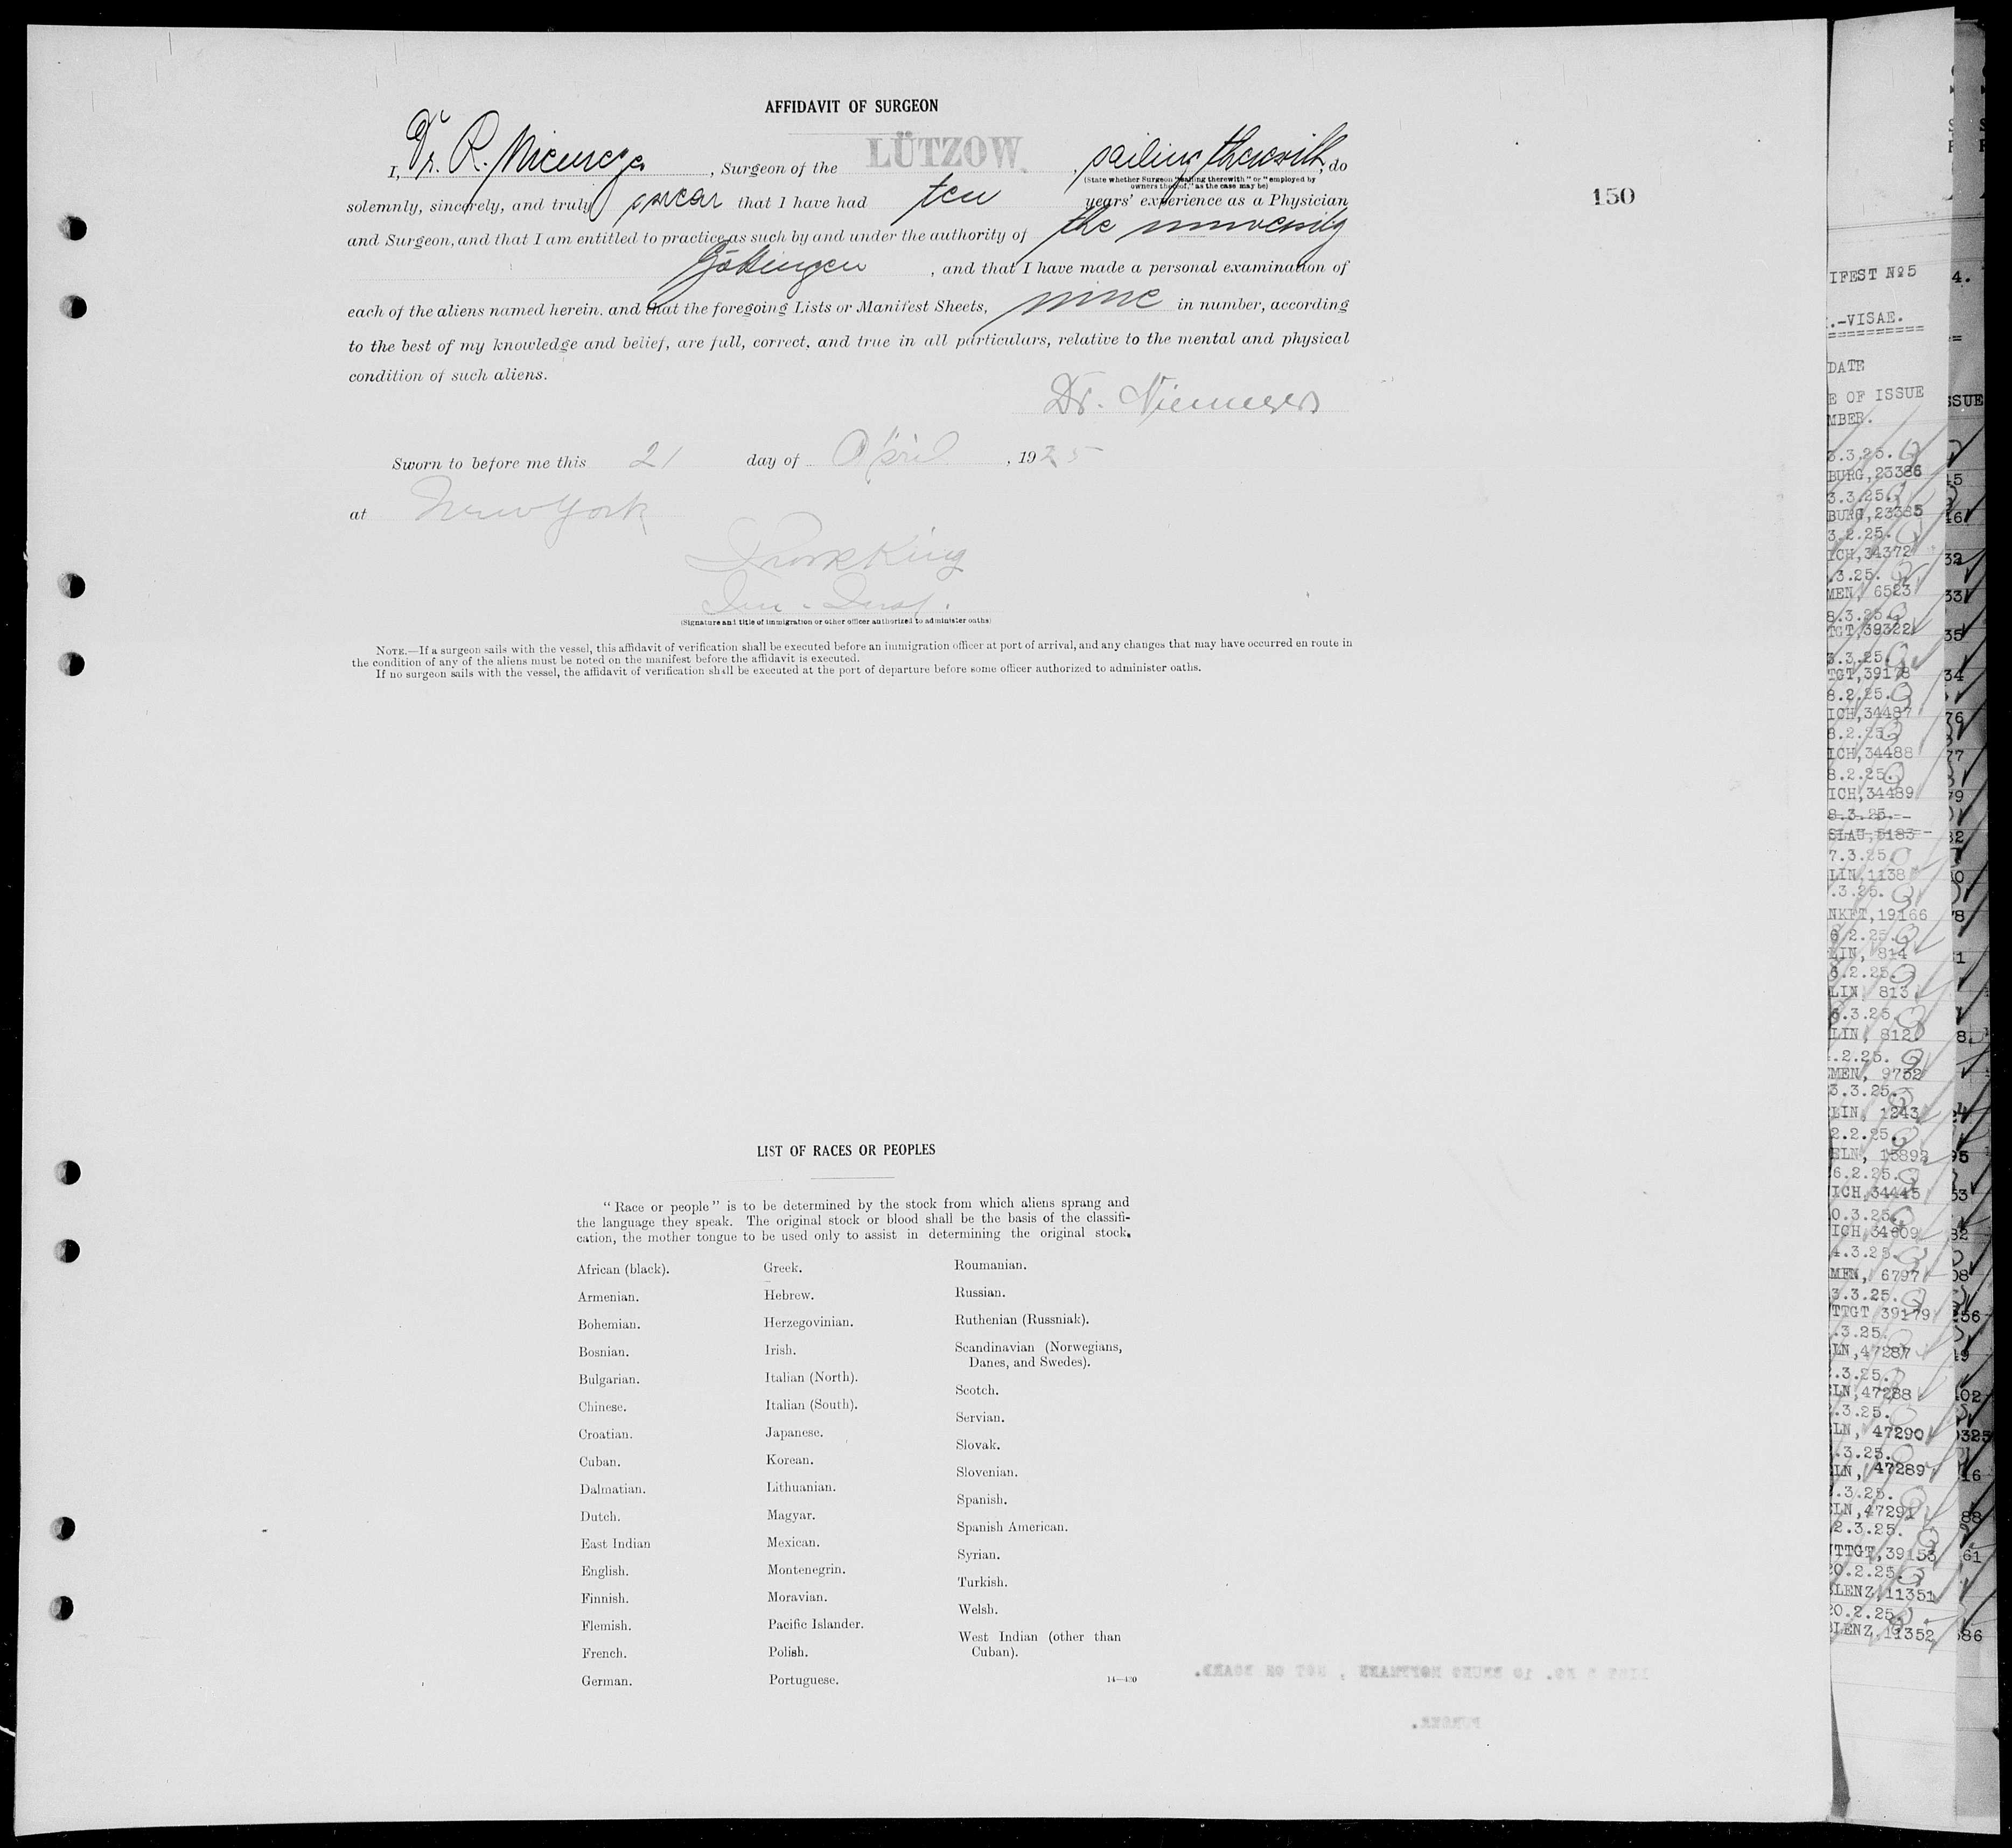 AFFIDAVIT OF SURGEON
I, Dr. R. Niemeyer, Surgeon of the LÜTZOW, sailing therewith, do
(State whether Surgeon "sailing therewith" or "employed by
owners thereof," as the case may be)
150
solemnly, sincerely, and truly swear that I have had ten years' experience as a Physician
and Surgeon, and that I am entitled to practice as such by and under the authority of the university
Göttingen, and that I have made a personal examination of
each of the aliens named herein. and that the foregoing Lists or Manifest Sheets, nine in number, according
to the best of my knowledge and belief, are full, correct, and true in all particulars, relative to the mental and physical
condition of such aliens.
Dr. Niemeyer
Sworn to before me this 21 day of April, 1925
at New York
King
Imm. Insp.
(Signature and title of immigration or other officer authorized to administer oaths)
NOTE.—If a surgeon sails with the vessel, this affidavit of verification shall be executed before an immigration officer at port of arrival, and any changes that may have occurred en route in
the condition of any of the aliens must be noted on the manifest before the affidavit is executed.
If no surgeon sails with the vessel, the affidavit of verification shall be executed at the port of departure before some officer authorized to administer oaths.
LIST OF RACES OR PEOPLES
"Race or people" is to be determined by the stock from which aliens sprang and
the language they speak. The original stock or blood shall be the basis of the classifi-
cation, the mother tongue to be used only to assist in determining the original stock.
African (black).
Armenian.
Bohemian.
Bosnian.
Bulgarian.
Chinese.
Croatian.
Cuban.
Dalmatian.
Dutch.
East Indian
English.
Finnish.
Flemish.
French.
German.
Greek.
Hebrew.
Herzegovinian.
Irish.
Italian (North).
Italian (South).
Japanese.
Korean.
Lithuanian.
Magyar.
Mexican.
Montenegrin.
Moravian.
Pacific Islander.
Polish.
Portuguese.
Roumanian.
Russian.
Ruthenian (Russniak).
Scandinavian (Norwegians,
Danes, and Swedes).
Scotch.
Servian.
Slovak.
Slovenian.
Spanish.
Spanish American.
Syrian.
Turkish.
Welsh.
West Indian (other than
Cuban).
14—420
IFEST №5
.-VISAE.
DATE
E OF ISSUE
MBER.
3.3.25.
BURG,23386
3.3.25.
BURG,23385
3.2.25.
ICH,34372
.3.25.
MEN, 6523
8.3.25.
TGT,39322
3.3.25.
TGT,39178
8.2.25.
ICH,34487
8.2.25.
ICH,34488
8.2.25.
ICH,34489
8.3.25.
SLAU,5183
7.3.25.
LIN,1138
.3.25.
NKFT,19166
6.2.25.
LIN, 814
6.2.25.
LIN, 813
6.3.25.
LIN, 812
.2.25.
MEN, 9752
3.3.25.
LIN, 1243
2.2.25.
ELN, 15892
6.2.25.
ICH,34445
0.3.25.
ICH,34609
4.3.25.
MEN, 6797
3.3.25.
TTGT 39179
.3.25.
LN,47287
.3.25.
LN,47288
.3.25.
LN, 47290
.3.25.
LN, 47289
.3.25.
LN,47291
2.3.25.
TTGT,39153
20.2.25.
LENZ,11351
20.2.25.
BLENZ,11352